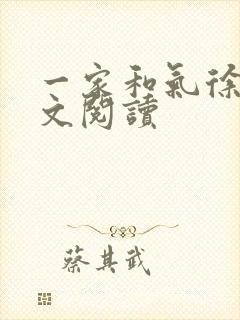 一家和氣徐
文閱讀
蔡其武